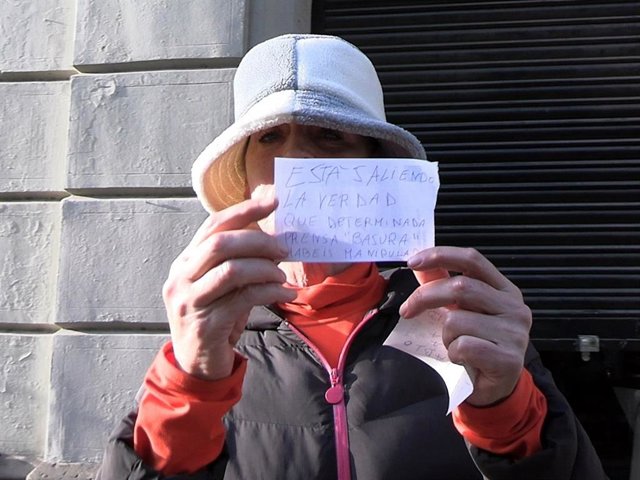 ESTA SALIENDO
LA VERDAD
QUE DETERMINADA
PRENSA "BASURA"
HABEIS MANIPULA